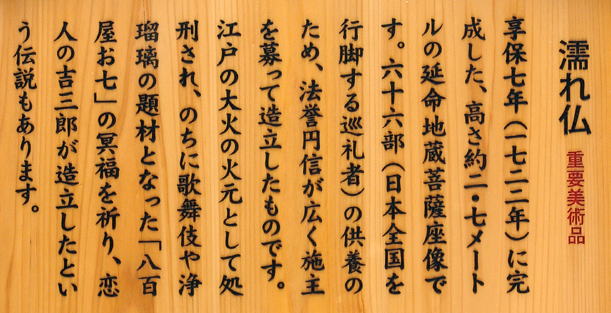 濡れ仏 重要美術品
享保七年（一七二二年）に完
成した、高さ約二・七メート
ルの延命地蔵菩薩座像で
す。六十六部（日本全国を
行脚する巡礼者）の供養の
ため、法誉円信が広く施主
を募って造立したものです。
江戸の大火の火元として処
刑され、のちに歌舞伎や浄
瑠璃の題材となった「八百
屋お七」の冥福を祈り、恋
人の吉三郎が造立したとい
う伝説もあります。